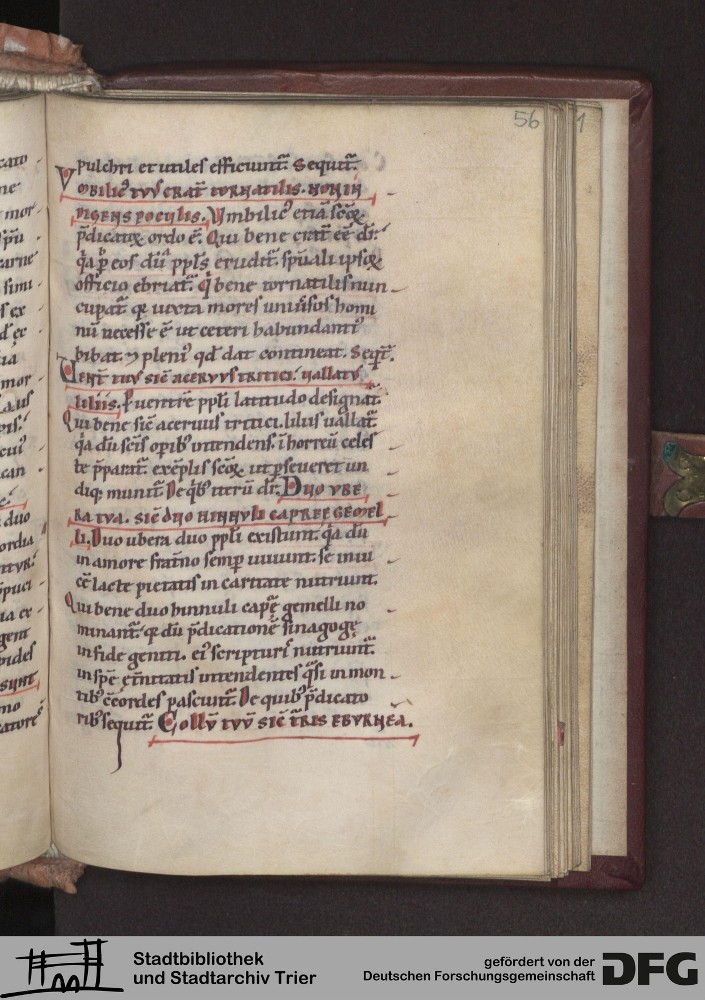 56
1
pulchri et utiles efficiunt᷑. Sequit᷑.
Vmbilic᷒ tuus crat᷑ tornatilis. non in
digens poculis. Vmbilic᷒ etiā sc̄oꝝ
p̄dicatoꝝ ordo ē. Qui bene crat᷑ eē dr̄.
q̄a p̄ eos dū ppl̄s erudit᷑. spūali ipsoꝝ
officio ebriat᷑. q̄ bene tornatilis nun
cupat᷑. q̄ iuxta mores uniūsos homi
nū necesse ē ut ceteri habundanti᷒
bibat. ⁊ pleni᷒ qd̄ dat contineat. Seqt᷑.
Vent̄ tuus sic̄ aceruus tritici. uallat᷒
liliis. P uentrē ppl̄i latitudo designat᷑
Qui bene sic̄ aceruus tritici. liliis uallat᷑.
q̄a dū sc̄is opib᷒ intendens. ī horreū celes
te p̄parat᷑. exēplis sc̄oꝝ ut p̄seueret un
diq; munit᷑. De q̄b᷒ iterū dr̄. Duo ube
ra tua. sic̄ duo hinnuli capreę gemel
li. Duo ubera duo ppl̄i existunt. q̄a dū
in amore fr̄atno semp uiuunt. se inui
cē lacte pietatis in caritate nutriunt.
Qui bene duo hinnuli capę gemelli no
minant᷑. q̄ dū p̄dicationē sinagogę
in fide gentiū. ei᷒ scripturis nutriunt᷑.
in spē et̄nitatis intendentes q̄si in mon
tib᷒ c̄cordes pascunt᷑. De quib᷒ p̄dicato
rib᷒ sequit᷑. Collū tuū sic̄ turris eburnea.
Stadtbibliothek
und Stadtarchiv Trier
gefördert von der
Deutschen Forschungsgemeinschaft
DFG